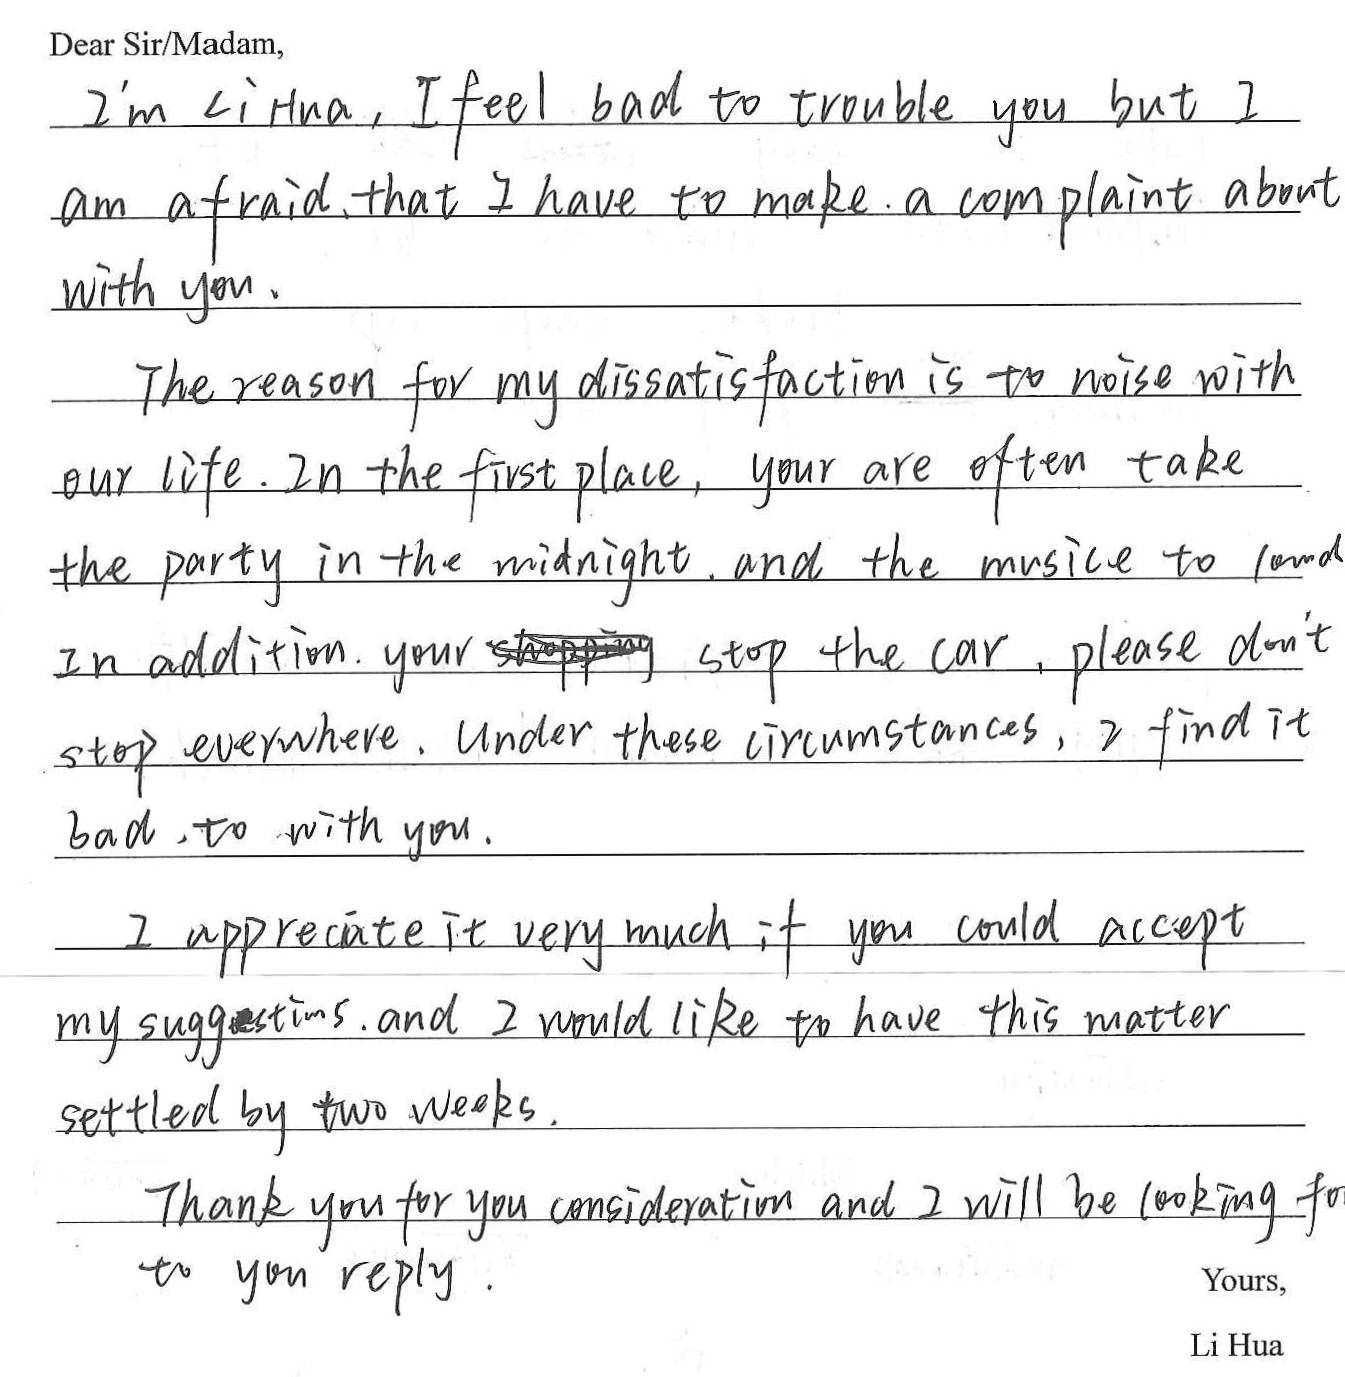 Dear Sir/Madam,
I'm Li Hua, I feel bad to trouble you but I
am afraid that I have to make a complaint about
with you.
The reason for my dissatisfaction is to noise with
our life. In the first place, your are often take
the party in the midnight. and the musice to loud
In addition. your stop the car, please don't
stop everwhere. Under these circumstances, I find it
bad, to with you.
I appreciate it very much if you could accept
my suggestins. and I would like to have this matter
settled by two weeks.
Thank you for you consideration and I will be looking for
to you reply.
Yours,
Li Hua